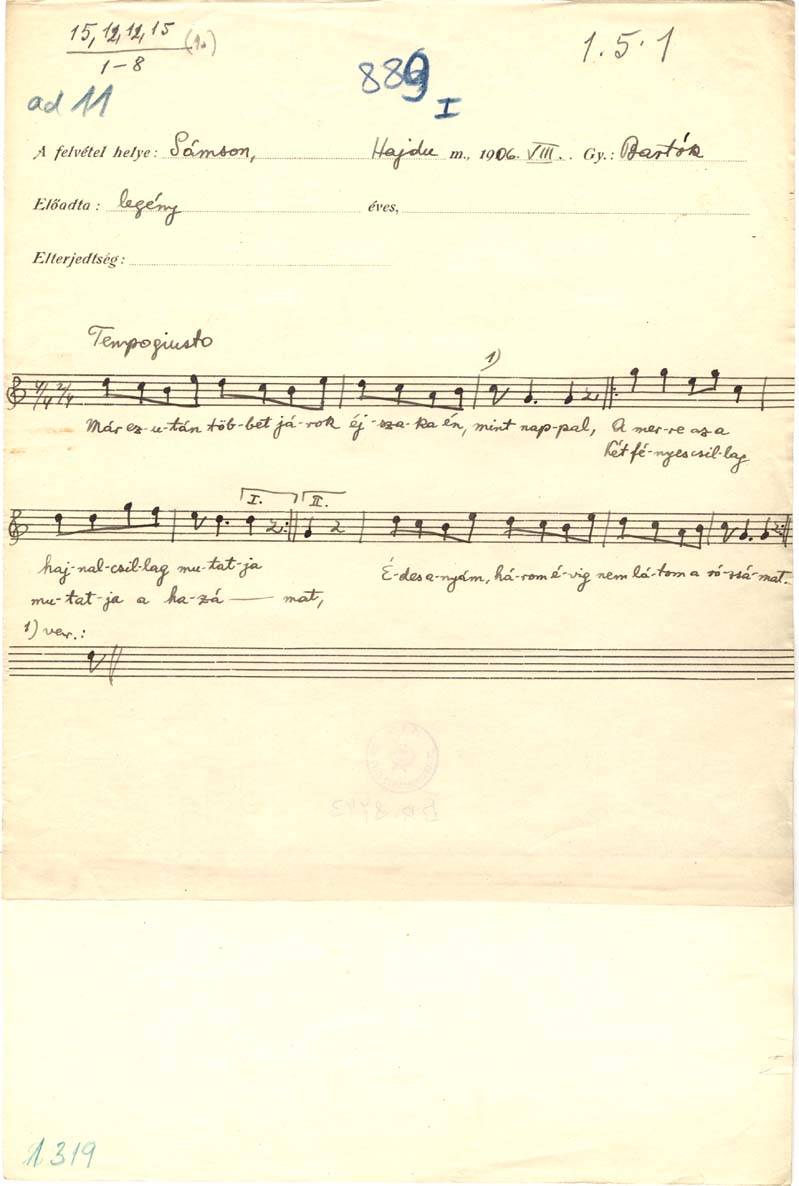 15, 12, 12, 15
1–8
1. 5. 1
889
I
ad 11
A felvétel helye: Sámson, Hajdu m., 1906. VIII. . Gy.: Bartók
Előadta: legény éves,
Elterjedtség:
Tempo giusto
1)
Már ez-u-tán töb-bet já-rok éj-sza-ka én, mint nap-pal, A mer-re az a
Két fé-nyes csil-lag
I. II.
haj-nal-csil-lag mu-tat-ja É-des a-nyám, há-rom é-vig nem lá-tom a ró-zsá-mat.
mu-tat-ja a ha-zá — mat,
1) var.:
1319